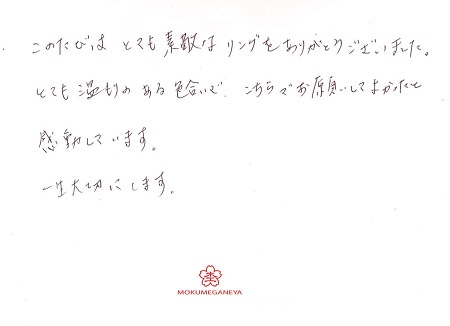 このたびは とても素敵なリングをありがとうございました。
とても温もりのある色合いで、こちらでお願いしてよかったと
感動しています。
一生大切にします。
MOKUMEGANEYA